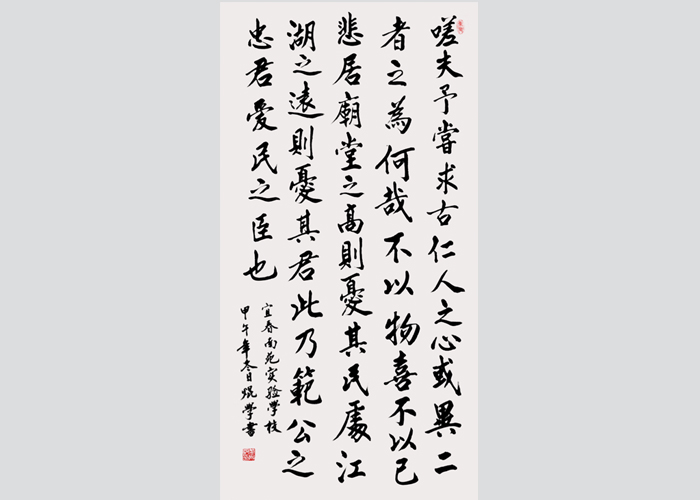 嗟夫予嘗求古仁人之心或異二
者之為何哉不以物喜不以己
悲居廟堂之高則憂其民處江
湖之遠則憂其君此乃範公之
忠君愛民之臣也
宜春南苑实验學校
甲午年冬日焜學書